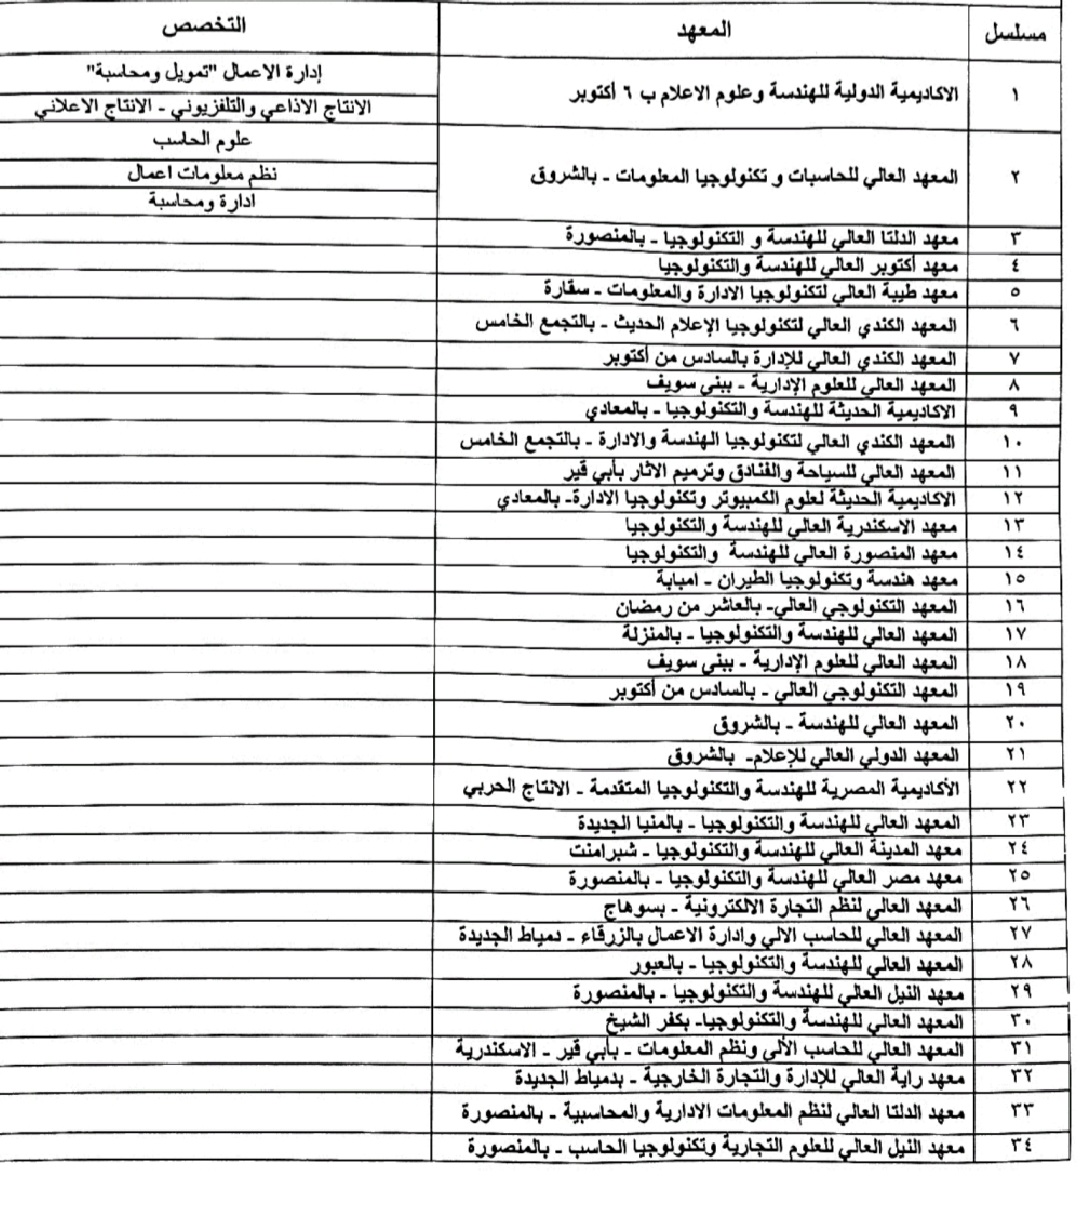 مسلسل المعهد التخصص
١ الاكاديمية الدولية للهندسة وعلوم الاعلام ب ٦ أكتوبر إدارة الاعمال "تمويل ومحاسبة"
الانتاج الاذاعي والتلفزيوني - الانتاج الاعلاني
٢ المعهد العالي للحاسبات و تكنولوجيا المعلومات - بالشروق علوم الحاسب
نظم معلومات اعمال
ادارة ومحاسبة
٣ معهد الدلتا العالي للهندسة و التكنولوجيا - بالمنصورة
٤ معهد أكتوبر العالي للهندسة والتكنولوجيا
٥ معهد طيبة العالي لتكنولوجيا الادارة والمعلومات - سقارة
٦ المعهد الكندي العالي لتكنولوجيا الإعلام الحديث - بالتجمع الخامس
٧ المعهد الكندي العالي للإدارة بالسادس من أكتوبر
٨ المعهد العالي للعلوم الإدارية - ببنى سويف
٩ الاكاديمية الحديثة للهندسة والتكنولوجيا - بالمعادي
١٠ المعهد الكندي العالي لتكنولوجيا الهندسة والادارة - بالتجمع الخامس
١١ المعهد العالي للسياحة والفنادق وترميم الاثار بأبي قير
١٢ الاكاديمية الحديثة لعلوم الكمبيوتر وتكنولوجيا الادارة- بالمعادي
١٣ معهد الاسكندرية العالي للهندسة والتكنولوجيا
١٤ معهد المنصورة العالي للهندسة والتكنولوجيا
١٥ معهد هندسة وتكنولوجيا الطيران - امبابة
١٦ المعهد التكنولوجي العالي- بالعاشر من رمضان
١٧ المعهد العالي للهندسة والتكنولوجيا - بالمنزلة
١٨ المعهد العالي للعلوم الإدارية - ببنى سويف
١٩ المعهد التكنولوجي العالي - بالسادس من أكتوبر
٢٠ المعهد العالي للهندسة - بالشروق
٢١ المعهد الدولي العالي للإعلام- بالشروق
٢٢ الأكاديمية المصرية للهندسة والتكنولوجيا المتقدمة - الانتاج الحربي
٢٣ المعهد العالي للهندسة والتكنولوجيا - بالمنيا الجديدة
٢٤ معهد المدينة العالي للهندسة والتكنولوجيا - شبرامنت
٢٥ معهد مصر العالي للهندسة والتكنولوجيا - بالمنصورة
٢٦ المعهد العالي لنظم التجارة الالكترونية - بسوهاج
٢٧ المعهد العالي للحاسب الالي وادارة الاعمال بالزرقاء - دمياط الجديدة
٢٨ المعهد العالي للهندسة والتكنولوجيا - بالعبور
٢٩ معهد النيل العالي للهندسة والتكنولوجيا - بالمنصورة
٣٠ المعهد العالي للهندسة والتكنولوجيا- بكفر الشيخ
٣١ المعهد العالي للحاسب الألي ونظم المعلومات - بأبي قير - الاسكندرية
٣٢ معهد راية العالي للإدارة والتجارة الخارجية - بدمياط الجديدة
٣٣ معهد الدلتا العالي لنظم المعلومات الادارية والمحاسبية - بالمنصورة
٣٤ معهد النيل العالي للعلوم التجارية وتكنولوجيا الحاسب - بالمنصورة